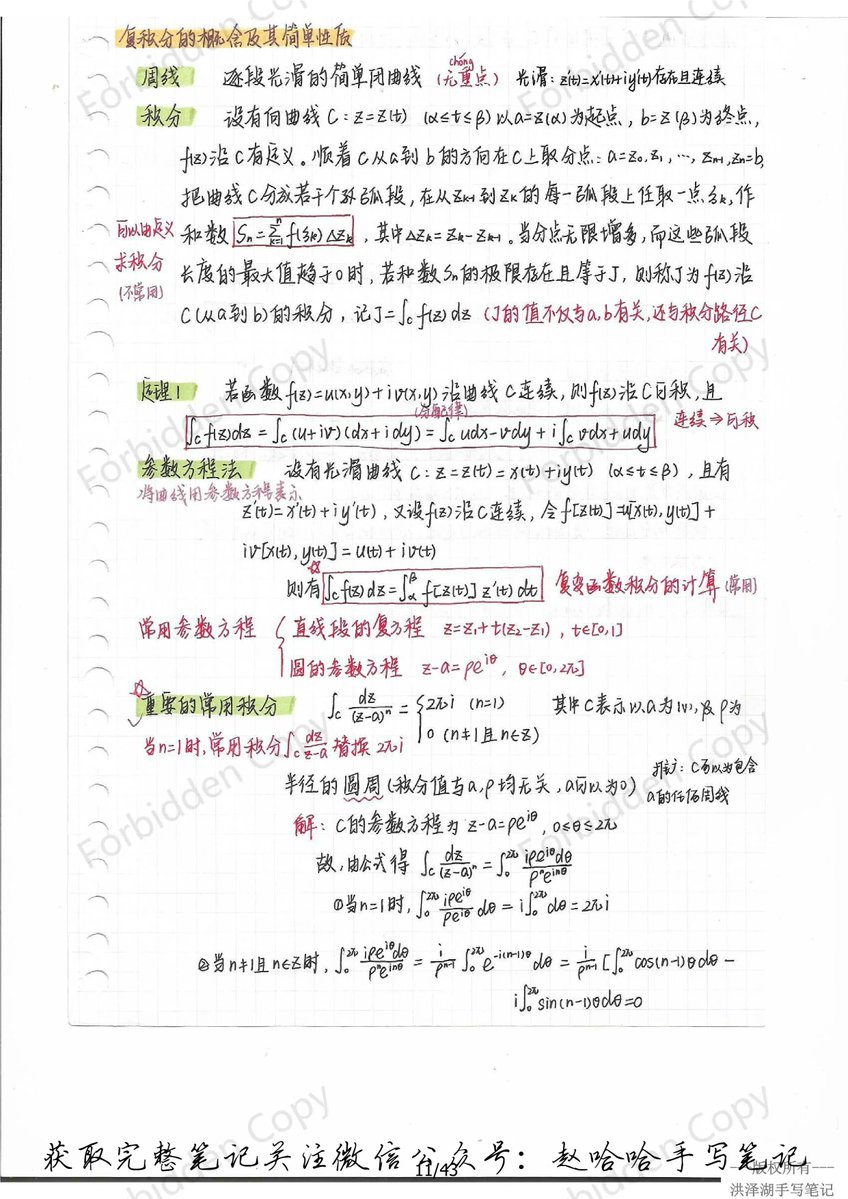 复积分的概念及其简单性质
周线 逐段光滑的简单闭曲线 (无重点) chóng 光滑：z'(t)=x'(t)+iy'(t)存在且连续
积分 设有向曲线 C：z=z(t) (α≤t≤β) 以a=z(α)为起点，b=z(β)为终点，
f(z)沿C有定义。顺着C从a到b的方向在C上取分点：a=z₀,z₁,…,zₙ₋₁,zₙ=b,
把曲线C分成若干个弧段，在从zₖ₋₁到zₖ的每一弧段上任取一点ξₖ，作
可以由定义 和数 Sₙ=∑ₖ₌₁ⁿ f(ξₖ)Δzₖ，其中Δzₖ=zₖ-zₖ₋₁。当分点无限增多，而这些弧段
求积分
(不常用) 长度的最大值趋于0时，若和数Sₙ的极限存在且等于J，则称J为f(z)沿
C(从a到b)的积分，记J=∫_C f(z)dz (J的值不仅与a,b有关,还与积分路径C
有关)
定理1 若函数f(z)=u(x,y)+iv(x,y)沿曲线C连续，则f(z)沿C可积，且
(分配律)
∫_C f(z)dz=∫_C (u+iv)(dx+idy)=∫_C udx-vdy+i∫_C vdx+udy 连续⇒可积
参数方程法 设有光滑曲线 C：z=z(t)=x(t)+iy(t) (α≤t≤β)，且有
将曲线用参数方程表示
z'(t)=x'(t)+iy'(t)，又设f(z)沿C连续，令f[z(t)]=u[x(t),y(t)]+
iv[x(t),y(t)]=u(t)+iv(t)
则有 ∫_C f(z)dz=∫_α^β f[z(t)]z'(t)dt 复变函数积分的计算(常用)
常用参数方程 { 直线段的复方程 z=z₁+t(z₂-z₁)，t∈[0,1]
圆的参数方程 z-a=ρe^{iθ}，θ∈[0,2π]
☆重要的常用积分 ∫_C dz/(z-a)ⁿ = { 2πi (n=1) 其中C表示以a为心，ρ为
0 (n≠1且n∈Z)
当n=1时,常用积分∫_C dz/(z-a) 替换2πi
半径的圆周(积分值与a,ρ均无关，a可以为0) 推广：C可以为包含
a的任何周线
解：C的参数方程为 z-a=ρe^{iθ}，0≤θ≤2π
故，由公式得 ∫_C dz/(z-a)ⁿ=∫₀^{2π} iρe^{iθ}dθ/(ρⁿe^{inθ})
①当n=1时，∫₀^{2π} iρe^{iθ}/(ρe^{iθ}) dθ=i∫₀^{2π}dθ=2πi
②当n≠1且n∈Z时，∫₀^{2π} iρe^{iθ}dθ/(ρⁿe^{inθ})=i/ρⁿ⁻¹ ∫₀^{2π} e^{-i(n-1)θ}dθ=i/ρⁿ⁻¹[∫₀^{2π}cos(n-1)θdθ-
i∫₀^{2π}sin(n-1)θdθ=0
Forbidden Copy
Forbidden Copy
Forbidden Copy
Forbidden Copy
Forbidden Copy
Forbidden Copy
Forbidden Copy
Forbidden Copy
获取完整笔记关注微信公众号：赵哈哈手写笔记
11/43
---版权所有---
洪泽湖手写笔记